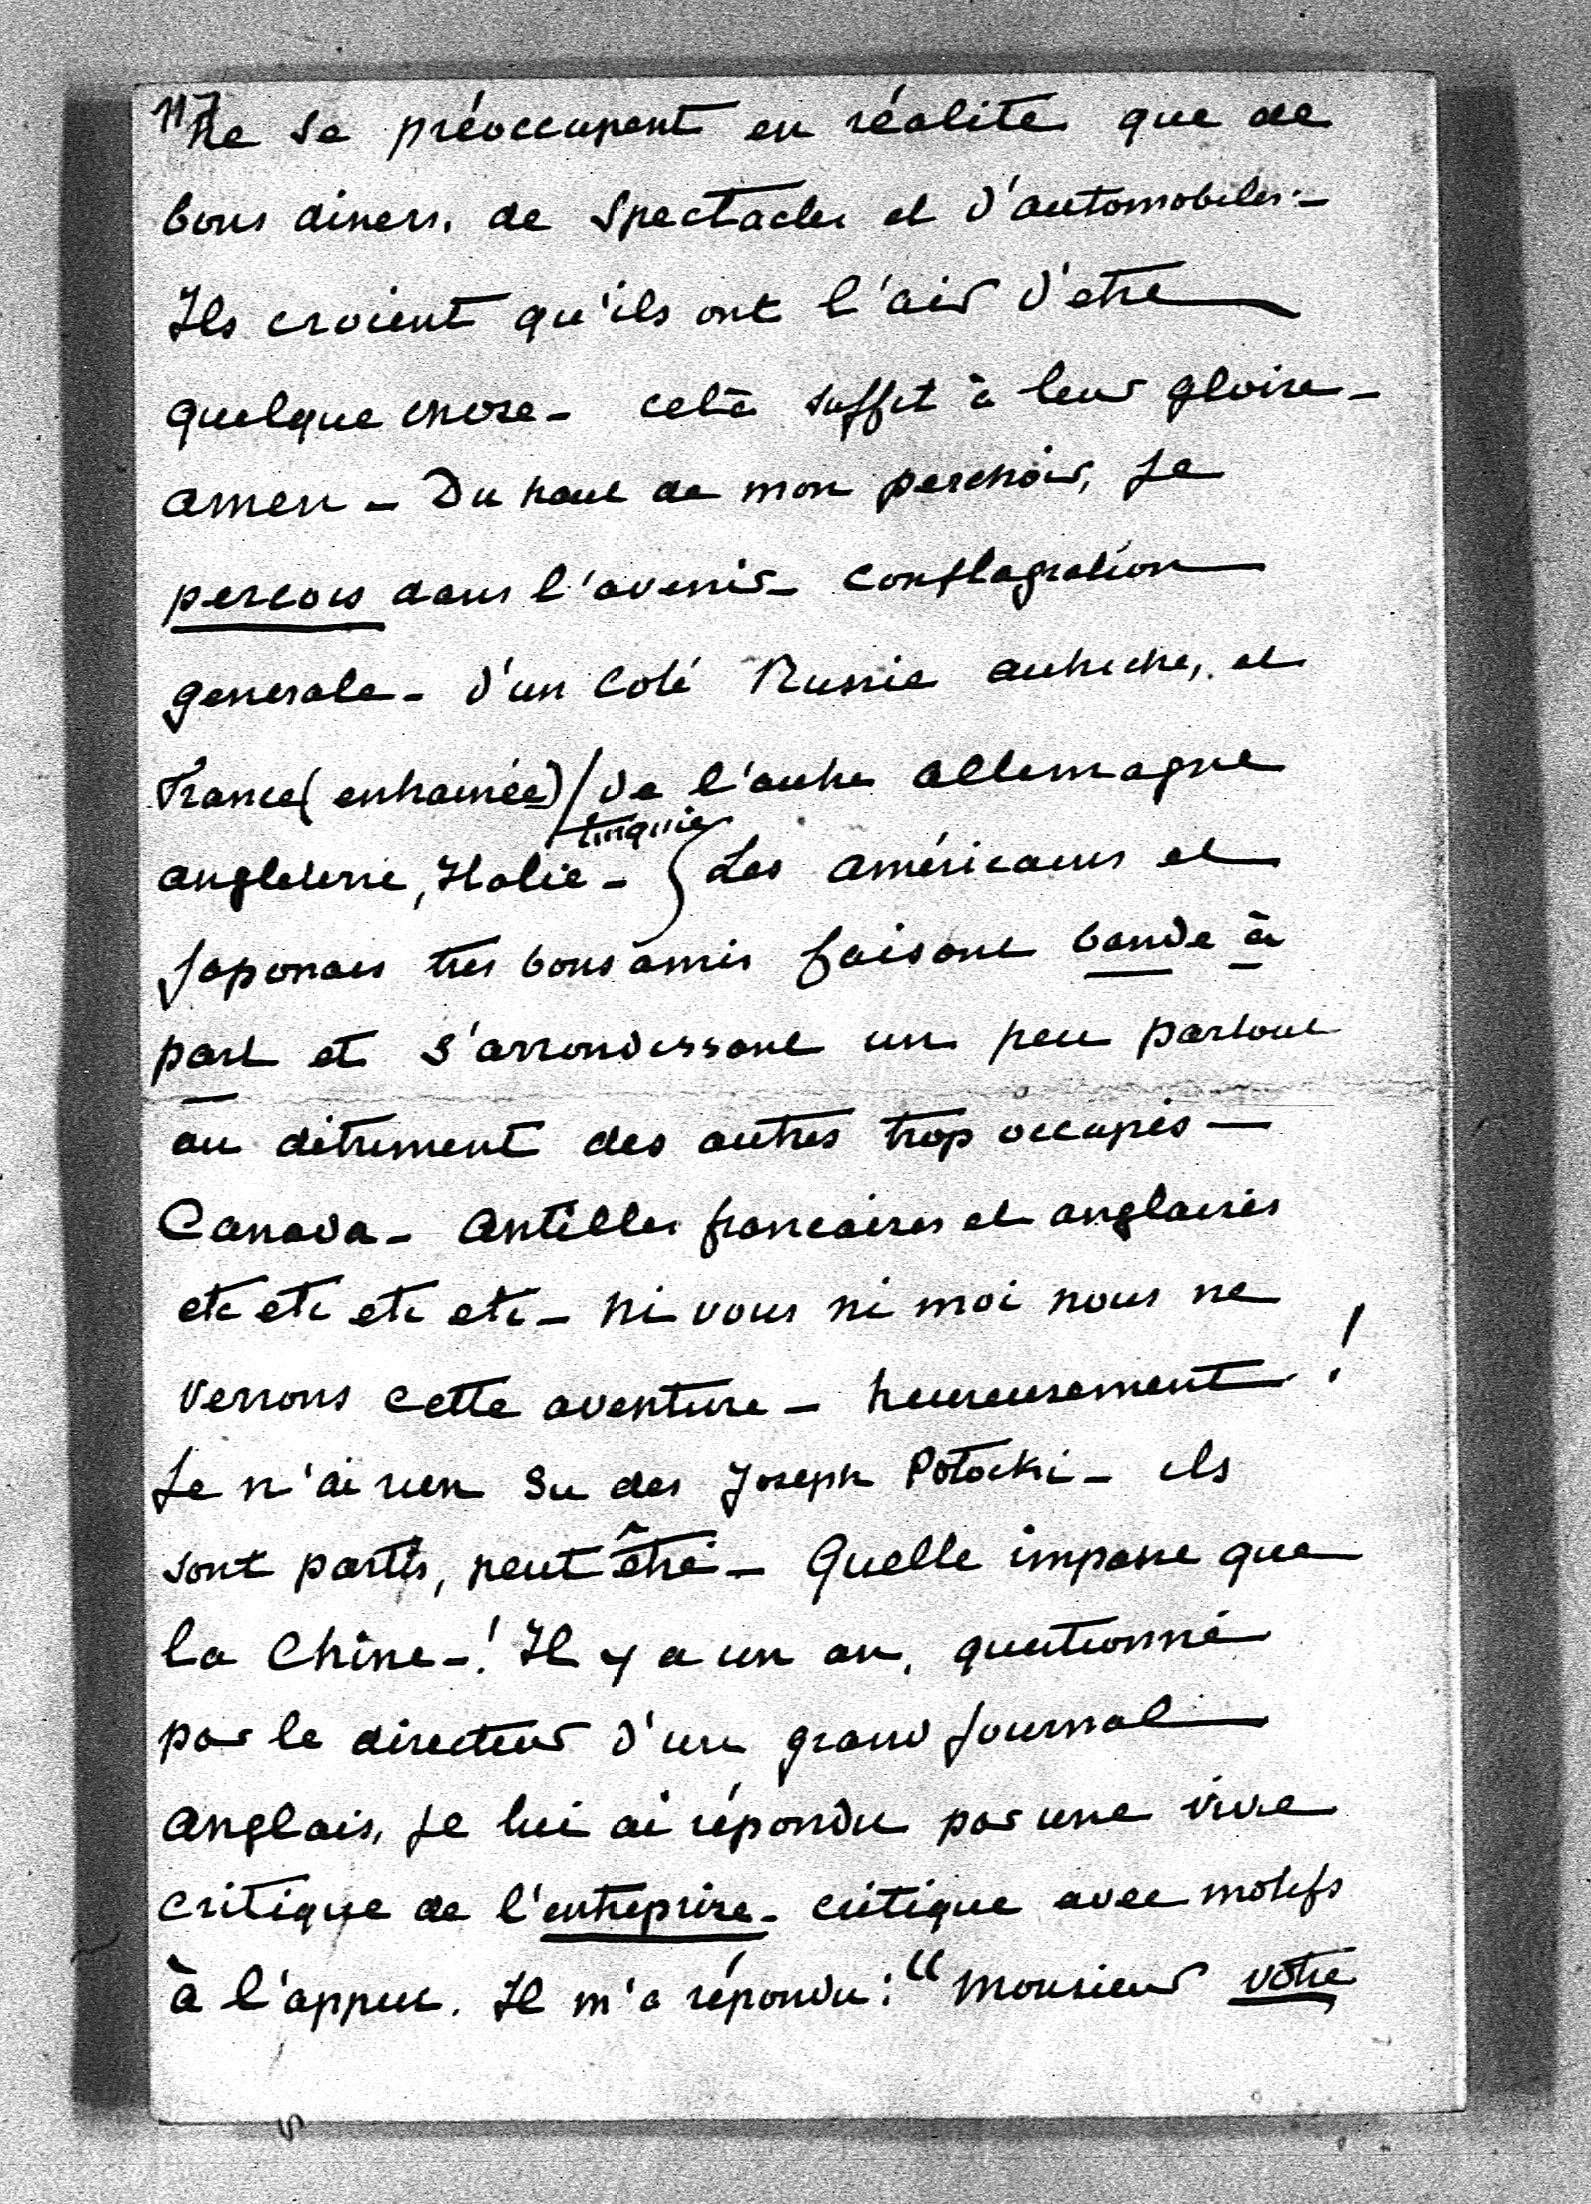 117
ne se préoccupent en réalité que de
bons diners, de spectacles et d'automobiles -
Ils croient qu'ils ont l'air d'etre
quelque chose - celà suffit à leur gloire -
amen - Du haut de mon perchoir, je
percois dans l'avenir - conflagration
generale - d'un coté Russie autriche, et
France (entrainée) / de l'autre allemagne
turquie
angleterre, Italie - Les américains et
Japonais très bons amis faisant bande à
part et s'arrondissant un peu partout
au détriment des autres trop occupés -
Canada - antilles francaises et anglaises
etc etc etc etc - ni vous ni moi nous ne
verrons cette aventure - heureusement !
Je n'ai rien su des Joseph Potocki - ils
sont partis, peut être - Quelle impasse que
la Chine - ! Il y a un an, questionné
par le directeur d'un grand journal
anglais, je lui ai répondu par une vive
critique de l'entreprise - critique avec motifs
à l'appui. Il m'a répondu : “ monsieur votre